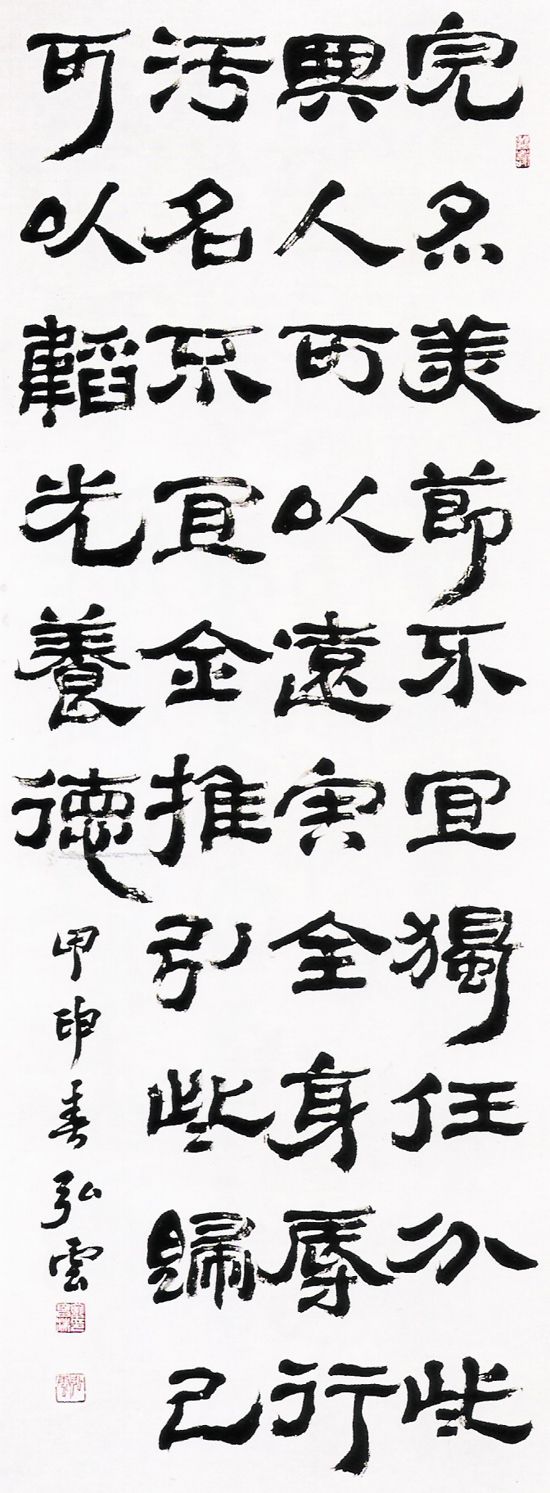 完名美節不宜獨任分些
與人可以遠害全身辱行
汚名不宜金推引些歸己
可以韜光養德
甲申春弘雲